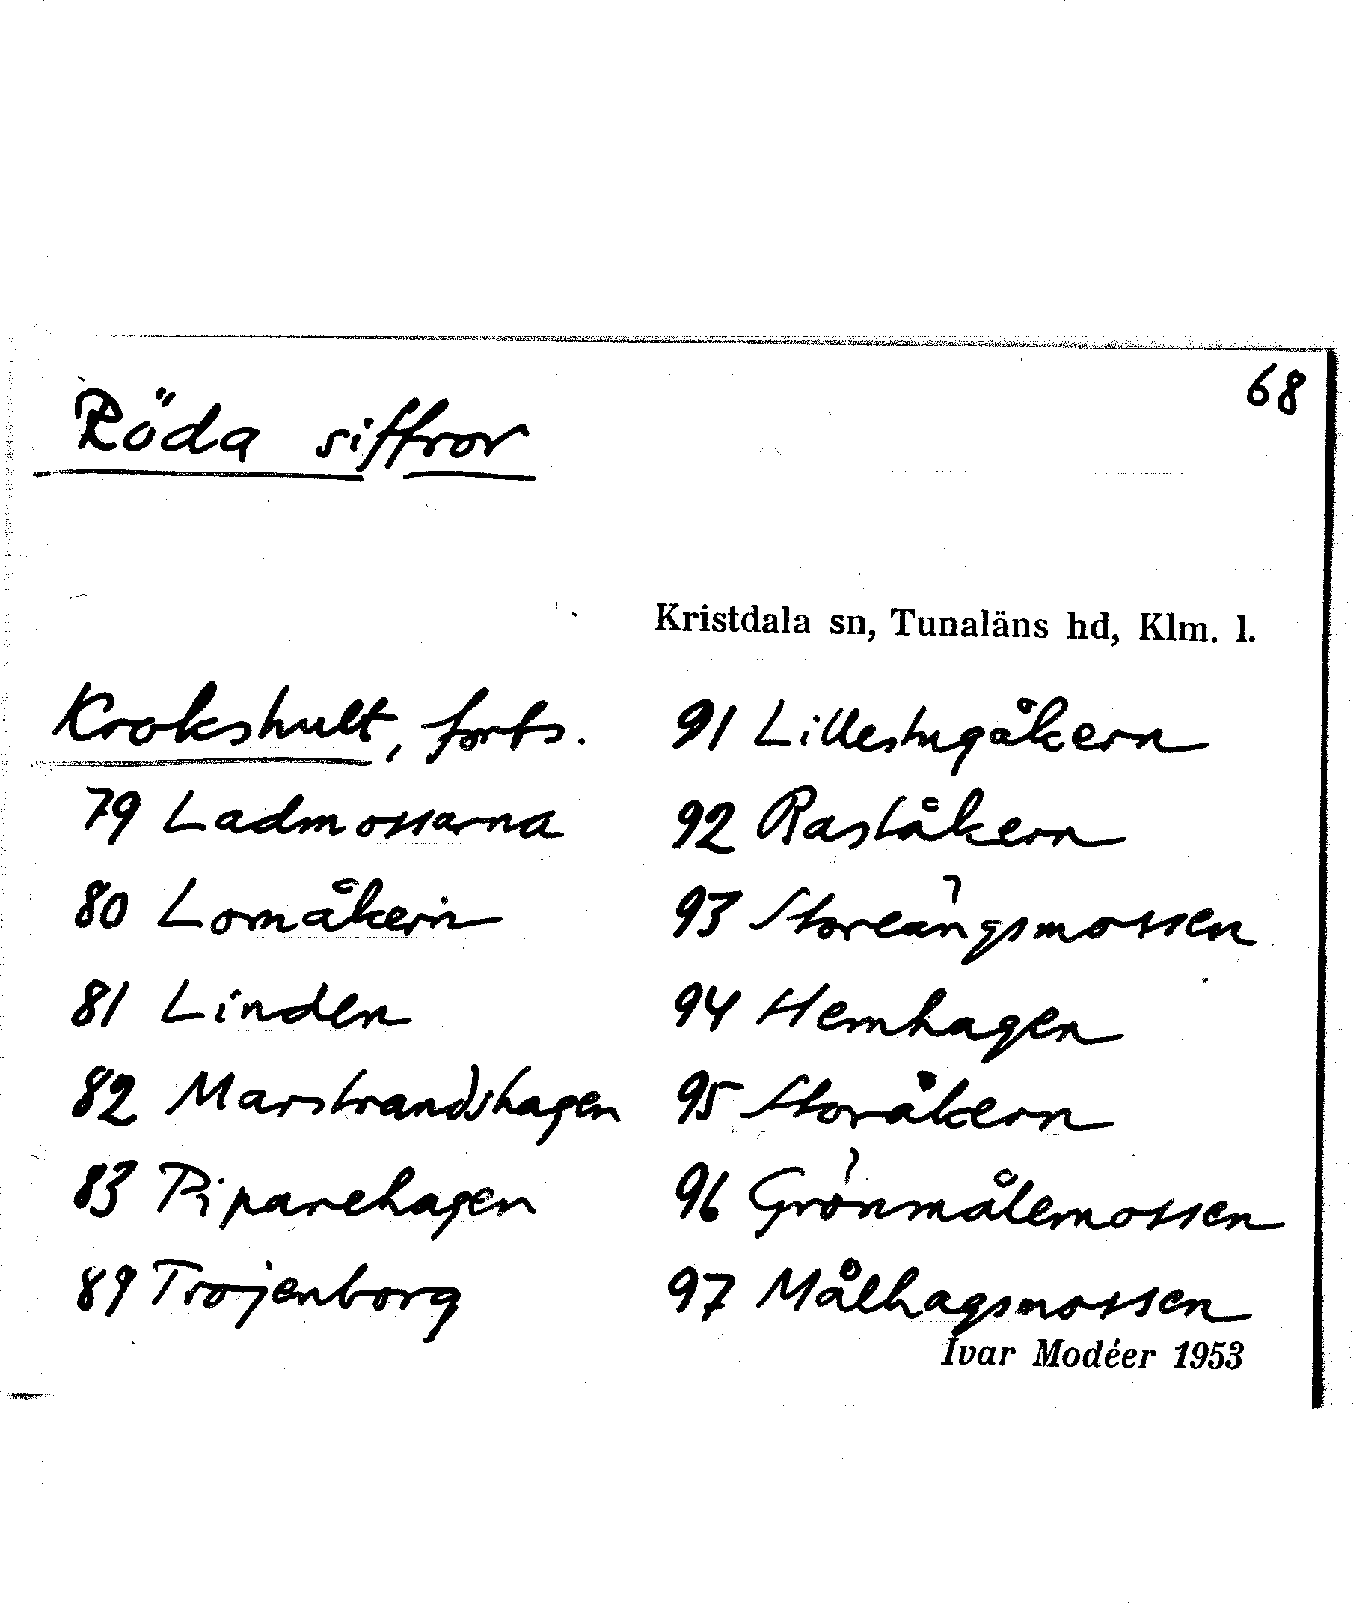 68
Röda siffror
Kristdala sn, Tunaläns hd, Klm. l.
Krokshult, forts.
79 Ladmossarna
80 Lomåkern
81 Linden
82 Marstrandshagen
83 Piparehagen
89 Trojenborg
91 Lillestugåkern
92 Raståkern
93 Storeängsmossen
94 Hemhagen
95 Storåkern
96 Grönmålemossen
97 Målhagsmossen
Ivar Modéer 1953